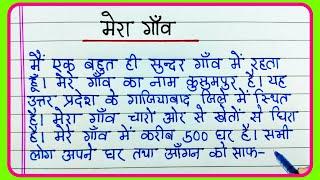 मेरा गाँव
मैं एक बहुत ही सुन्दर गाँव में रहता
हूँ। मेरे गाँव का नाम कुसुमपुर है। यह
उत्तर प्रदेश के गाजियाबाद जिले में स्थित
है। मेरा गाँव चारो ओर से खेतों से घिरा
है। मेरे गाँव में करीब 500 घर है। सभी
लोग अपने घर तथा आँगन को साफ-